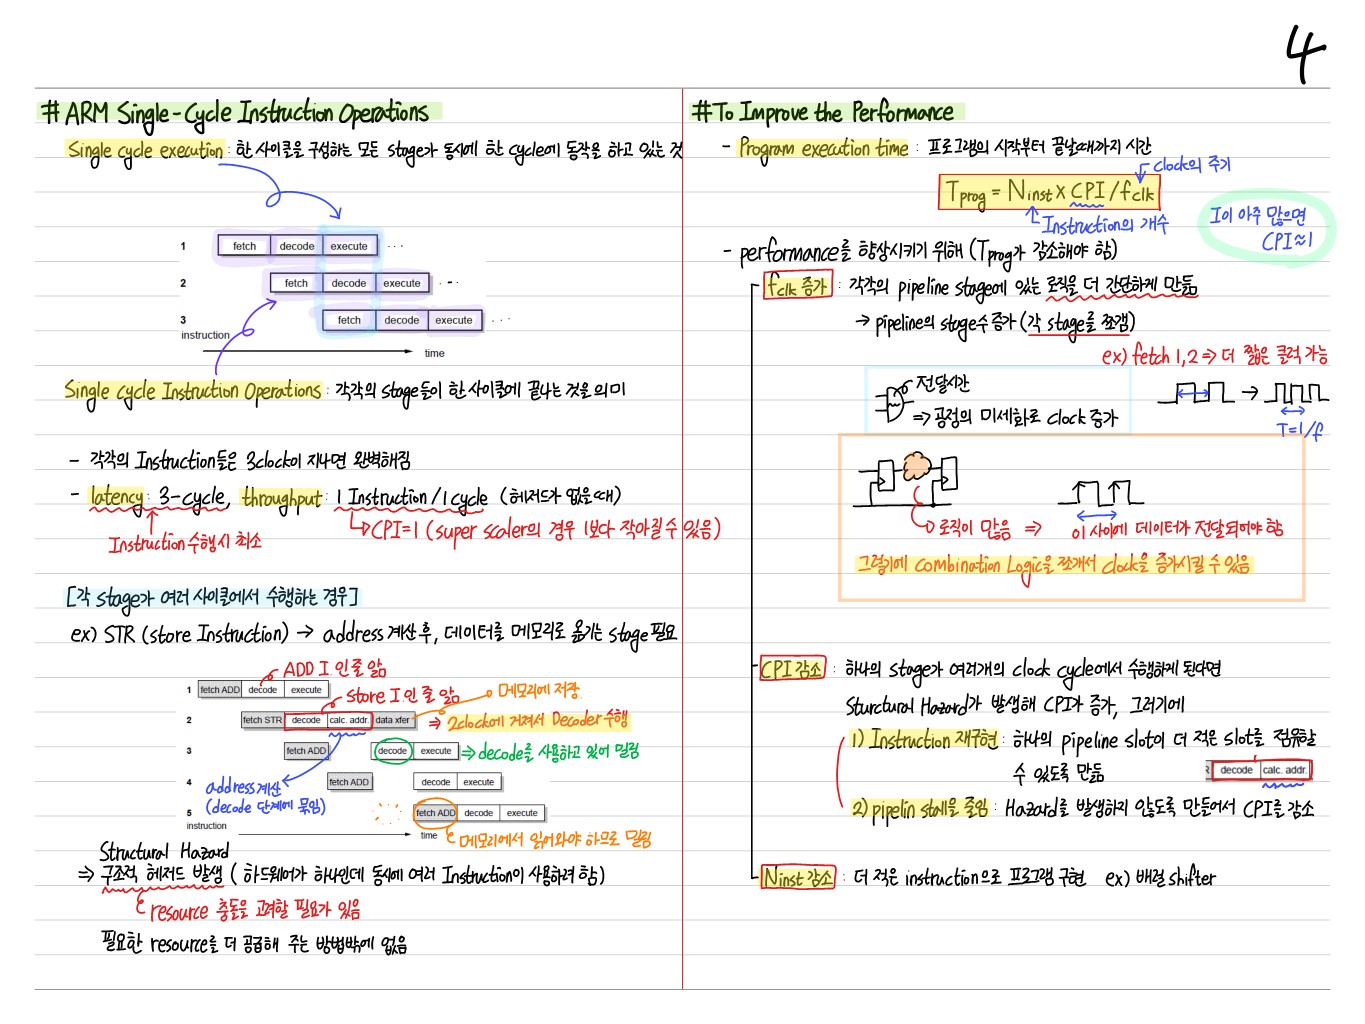 4
# ARM Single-Cycle Instruction Operations
Single cycle execution : 한 사이클을 구성하는 모든 stage가 동시에 한 cycle에 동작을 하고 있는 것
1 fetch decode execute ...
2 fetch decode execute ...
3 fetch decode execute ...
instruction
time
Single cycle Instruction Operations : 각각의 stage들이 한 사이클에 끝나는 것을 의미
- 각각의 Instruction들은 3clock이 지나면 완벽해짐
- latency : 3-cycle, throughput : 1 Instruction / 1 cycle (헤저드가 없을때)
Instruction 수행시 최소
↳ CPI=1 (super scaler의 경우 1보다 작아질 수 있음)
[각 stage가 여러 사이클에서 수행하는 경우]
ex) STR (store Instruction) → address 계산 후, 데이터를 메모리로 옮기는 stage 필요
ADD I.인줄 앎
1 fetch ADD decode execute
store I.인 줄 앎
메모리에 저장
2 fetch STR decode calc. addr. data xfer
⇒ 2clock에 거쳐서 Decoder 수행
3 fetch ADD decode execute
⇒ decode를 사용하고 있어 밀림
4 fetch ADD decode execute
address 계산
(decode 단계에 묶임)
5 fetch ADD decode execute
instruction
time
메모리에서 읽어와야 하므로 밀림
Structural Hazard
⇒ 구조적 헤저드 발생 (하드웨어가 하나인데 동시에 여러 Instruction이 사용하려 함)
resource 충돌을 고려할 필요가 있음
필요한 resource를 더 공급해 주는 방법밖에 없음
# To Improve the Performance
- Program execution time : 프로그램의 시작부터 끝날때까지 시간
clock의 주기
Tprog = Ninst x CPI / fclk
Instruction의 개수
I이 아주 많으면
CPI≈1
- performance를 향상시키기 위해 (Tprog가 감소해야 함)
fclk 증가 : 각각의 pipeline stage에 있는 로직을 더 간단하게 만듦
→ pipeline의 stage수 증가 (각 stage를 쪼갬)
ex) fetch 1,2 ⇒ 더 짧은 클럭 가능
전달시간
⇒ 공정의 미세화로 clock 증가
T=1/f
로직이 많음 ⇒ 이 사이에 데이터가 전달되어야 함
그렇기에 combination Logic을 쪼개서 clock을 증가시킬 수 있음
CPI 감소 : 하나의 stage가 여러개의 clock cycle에서 수행하게 된다면
Sturctural Hazard가 발생해 CPI가 증가, 그러기에
1) Instruction 재구현 : 하나의 pipeline slot이 더 적은 slot을 점유할
수 있도록 만듦
R decode calc. addr.
2) pipelin stall을 줄임 : Hazard를 발생하지 않도록 만들어서 CPI를 감소
Ninst 감소 : 더 적은 instruction으로 프로그램 구현 ex) 배럴 shifter